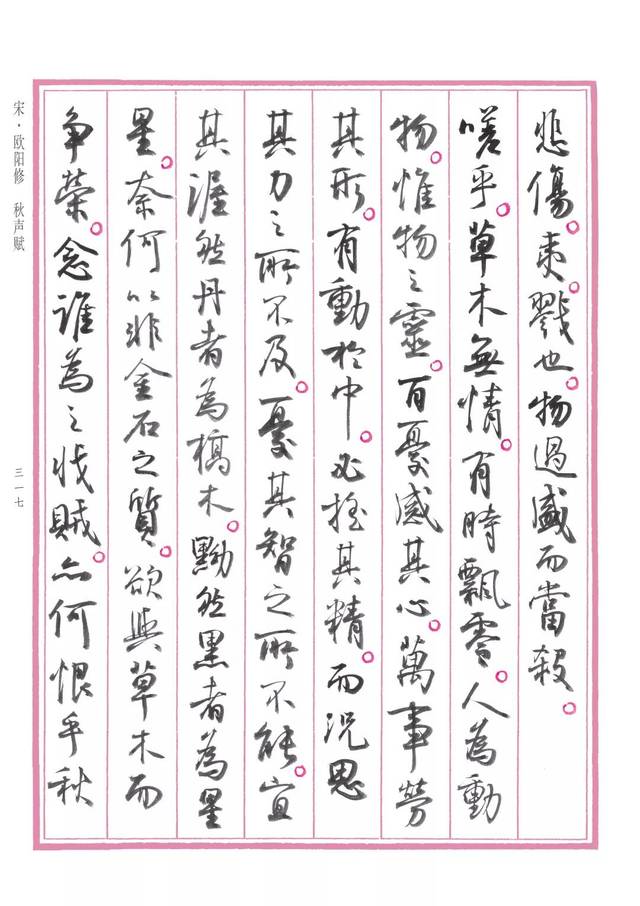 悲傷。夷。戮也。物過盛而當殺。
嗟乎。草木無情。有時飄零。人為動
物。惟物之靈。百憂感其心。萬事勞
其形。有動於中。必搖其精。而況思
其力之所不及。憂其智之所不能。宜
其渥然丹者為槁木。黟然黑者為星
星。奈何以非金石之質。欲與草木而
争榮。念誰為之戕賊。亦何恨乎秋
宋·欧阳修 秋声赋
三一七